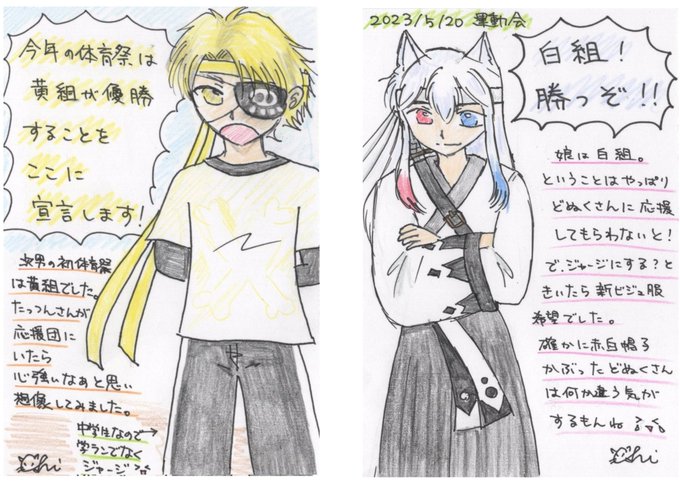 今年の体育祭は
黄組が優勝
することを
ここに
宣言します!
次男の初体育祭
は黄組でした。
たっつんさんが
応援団に
いたら
心強いなぁと思い
想像してみました。
中学生なので→
学ランでなく
ジャージ
Chi
2023/5/20 運動会
白組!
勝つぞ!!
娘は白組。
ということはやっぱり
どぬくさんに応援
してもらわないと!
で、ジャージにする?と
きいたら新ビジュ服
希望でした。
確かに赤白帽子
かぶったどぬくさん
は何か違う気が
するもんね
Chi